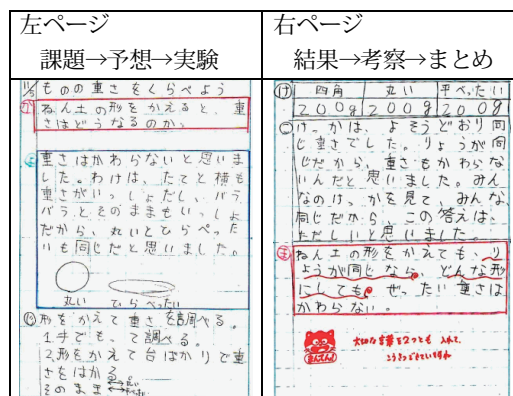 左ページ
課題→予想→実験
右ページ
結果→考察→まとめ
11/5 ものの重さをくらべよう
ねん土の形をかえると、重
さはどうなるのか、
重さはかわらないと思いま
した。わけは、たてと横も
重さがいっしょだし、バラ
バラとそのままもいっしょ
だから、丸いとひらぺった
いも同じだと思いました。
丸い ひらぺったい
形をかえて重さを調べる。
1.手でもって調べる。
2.形をかえて台はかりで重
さをはかる
そのまま
け 四角 丸い 平べったい
200g 200g 200g
こ けっかは、よそうどおり同
じ重さでした。りょうが同
じだから、重さもかわらな
いんだと思いました。みん
なのけっかを見て、みんな、
同じだから、この答えは、
ただしいと思いました。
ま ねん土の形をかえても、り
ょうが同じなら、どんな形
にしても、ぜったい重さは
かわらない。
大切な言葉を2つとも入れて、